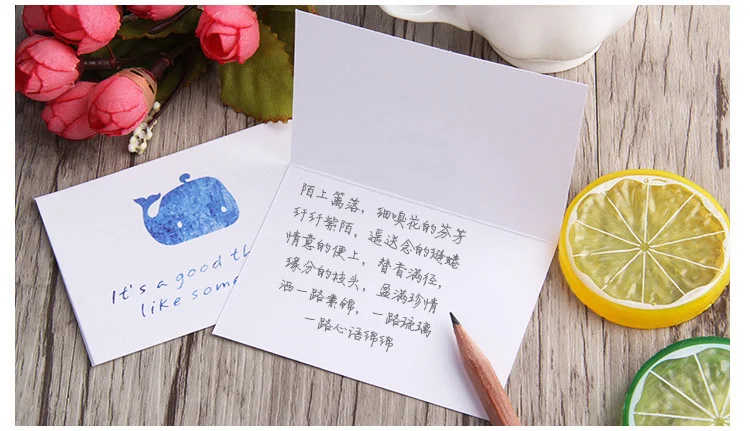 It's a good th
like some
陌上篱落，细嗅花的芬芳
纤纤紫陌，遥送念的翅蜷
情意的便上，替香满径，
缘分的枝头，盈满珍情
洒一路素锦，一路琉璃
一路心语绵绵